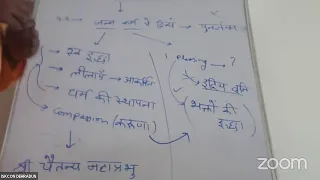 जन्म कर्म मे दिव्यं → पुनर्जन्म
x
→ स्व इच्छा
→ लीलाएँ → आकर्षित
→ धर्म की स्थापना
→ Compassion (करुणा)
pleasing → ?
इंद्रिय तृप्ति
भक्तों की इच्छा
श्री चैतन्य महाप्रभु
zoom
ISKCON DEHRADUN